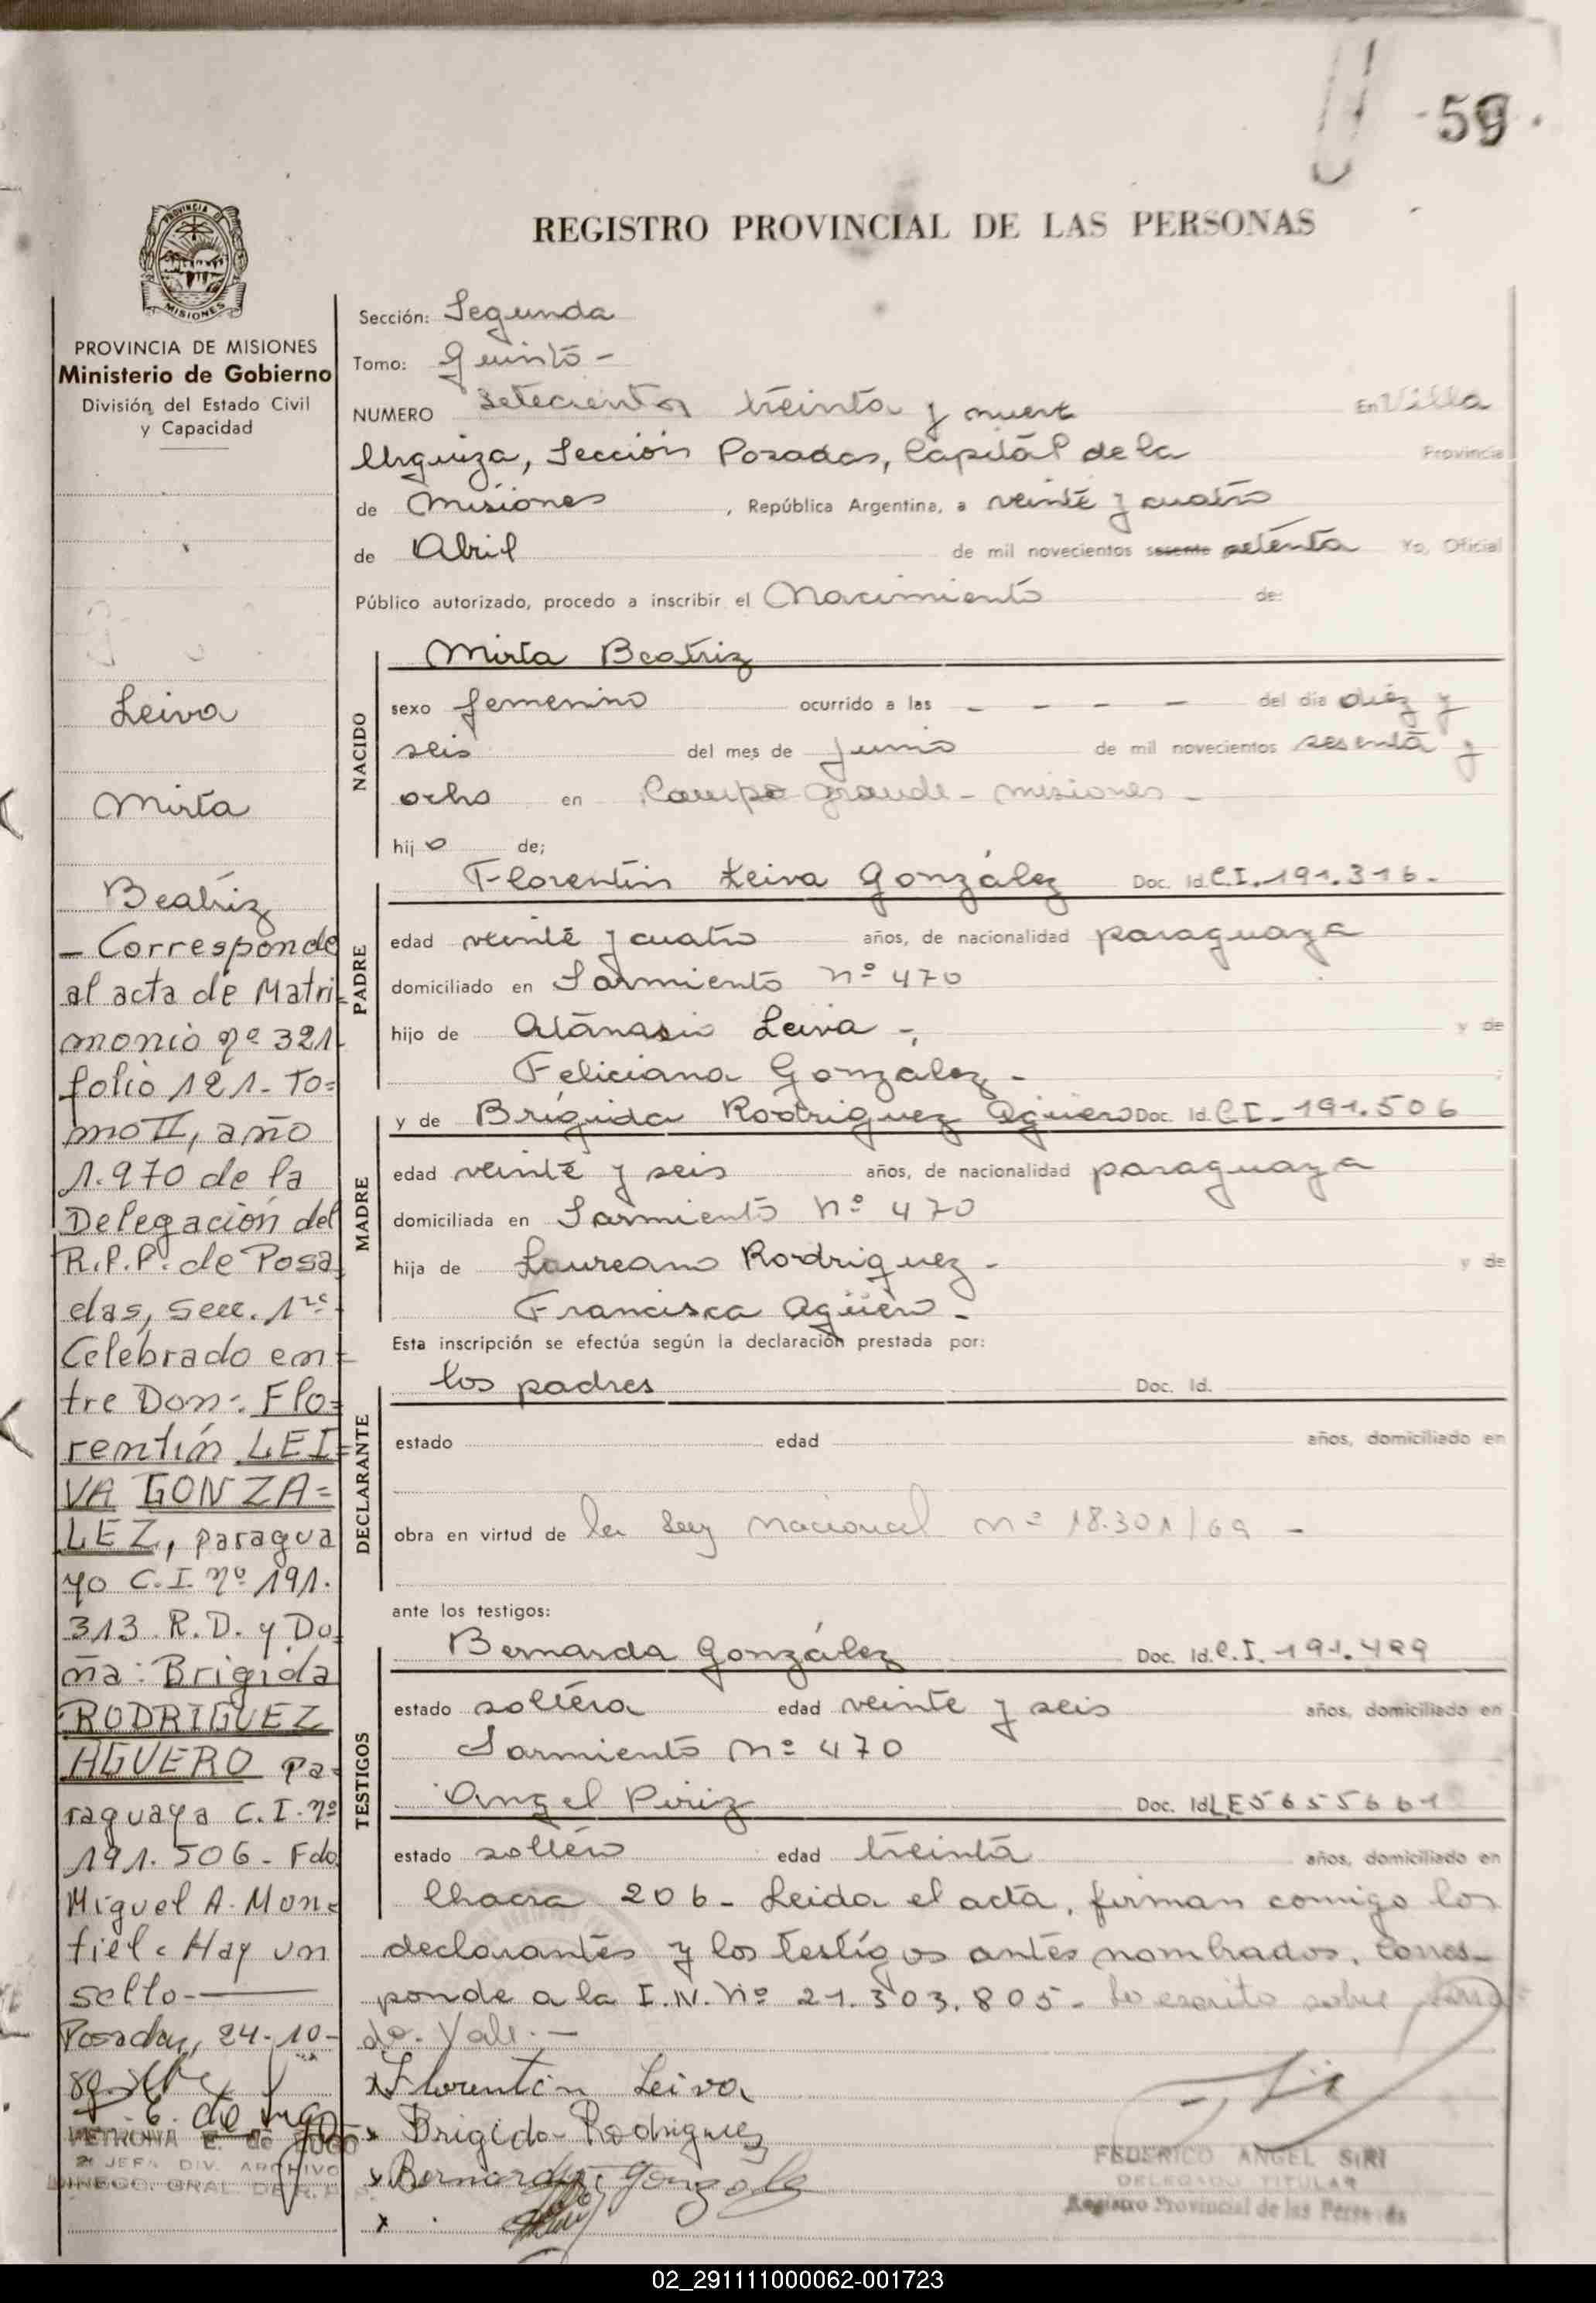 59
REGISTRO PROVINCIAL DE LAS PERSONAS
PROVINCIA DE MISIONES
Ministerio de Gobierno
División del Estado Civil
y Capacidad
Leiva
Mirta
Beatriz
- Corresponde
al acta de Matri-
monio nº 321
folio 121- To=
mo II, año
1.970 de la
Delegación del
R.P.P. de Posa
das, Secc. 1ra
Celebrado en=
tre Don: Flo=
rentín LEI=
VA GONZA=
LEZ, paragua
yo C.I. nº 191.
313 R.D. y Do
ña: Brigida
RODRIGUEZ
AGUERO Pa-
raguaya C.I. nº
191.506- Fdo
Miguel A. Mon=
tiel. Hay un
sello-
Posadas, 24-10-
89
PETRONA E. de LUGO
JEFA DIV. ARCHIVO
DIRECC. GRAL. DE R.P.P.
Sección: Segunda
Tomo: Quinto -
NUMERO Setecientos treinta y nueve En Villa
Urquiza, Sección Posadas, Capital de la Provincia
de Misiones , República Argentina, a veinte y cuatro
de Abril de mil novecientos sesenta setenta Yo, Oficial
Público autorizado, procedo a inscribir el Nacimiento de:
NACIDO
Mirta Beatriz
sexo femenino ocurrido a las - - - - del día diéz y
seis del mes de junio de mil novecientos sesenta y
ocho en Campo Grande - Misiones -
hija de;
PADRE
Florentin Leiva González Doc. Id. C.I. 191.316-
edad veinte y cuatro años, de nacionalidad paraguaya
domiciliado en Sarmiento Nº 470
hijo de Atanasio Leiva - y de
Feliciana González -
MADRE
y de Brígida Rodriguez Agüero Doc. Id. C.I- 191.506
edad veinte y seis años, de nacionalidad paraguaya
domiciliada en Sarmiento Nº 470
hija de Laureano Rodriguez - y de
Francisca Agüero -
Esta inscripción se efectúa según la declaración prestada por:
DECLARANTE
los padres Doc. Id.
estado edad años, domiciliado en
obra en virtud de la Ley Nacional nº 18.301/69 -
ante los testigos:
TESTIGOS
Bernarda González Doc. Id. C.I. 191.499
estado soltera edad veinte y seis años, domiciliado en
Sarmiento Nº 470
Angel Piriz Doc. Id. LE 5655661
estado soltero edad treinta años, domiciliado en
Chacra 206- Leida el acta, firman comigo los
declarantes y los testigos antes nombrados. Corres-
ponde a la I.N. Nº 21.303.805- Lo escrito sobre
do. Vale.-
x Florentin Leiva
x Brigida Rodriguez
x Bernarda Gonzalez
x
FEDERICO ANGEL SIRI
DELEGADO TITULAR
Registro Provincial de las Personas
02_291111000062-001723